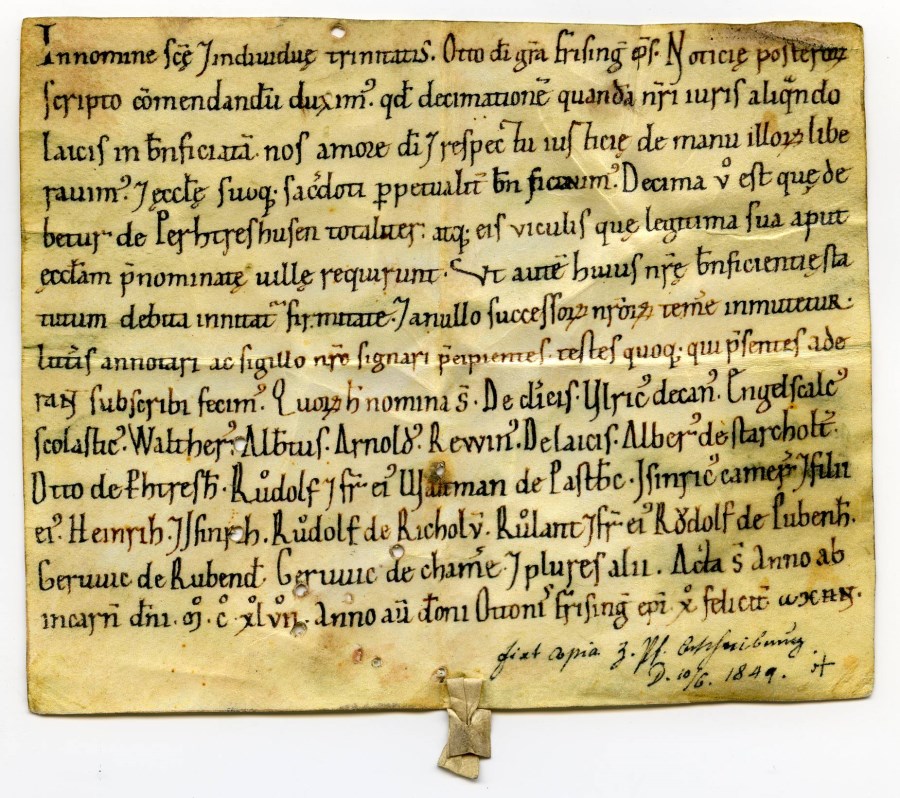 Innomine scẽ ⁊individuę trinitatis. Otto dĩ gr̃a fr̃ising̃ ep̃s. Noticię posteroꝝ
scripto cõmendandũ duximꝰ. qd̃ decimationẽ quandã nr̃i iuris aliqñdo
laicis in bñficiatã. nos amore dĩ ⁊ respectu iusticię de manu illoꝝ libe
rauimꝰ. ⁊ ęccłę suoqꝫ sac̃doti ꝑpetualit̃ bñficiauimꝰ. Decima v̊ est quę de
betur de Perhtreshusen totaliter. atqꝫ eis viculis quę legitima sua aput
ęccłam p̃nominatę uillę requirunt. Ut autẽ huius nr̃ę bñficientię sta
tutum debita innitat᷑ firmitate. ⁊ anullo successoꝝ nr̃oꝝ tem̃e inmutetur.
litt̃is annotari ac sigillo nr̃o signari p̃cipientes. testes quoqꝫ qui p̃sentes ade
rant subscribi fecimꝰ. Quoꝝ h̃ nomina s̃. De cl̃icis. Ulricꝰ decanꝰ. Engelscalcꝰ
scolasticꝰ. Waltherꝰ. Alb̃tus. Arnold̃. Rewinꝰ. De laicis. Alberꝰ de starcholt̃.
Otto de Phtresh̃. Růdolf ⁊ fr̃ eiꝰ de Pastb̃c. Isinricꝰ camer̃ ⁊ filii
eiꝰ. Heinrih. ⁊ Isinrih. Růdolf de Richolṽ. Růlant ⁊ fr̃ eiꝰ Růdolf de Pubenh̃.
Geruuic de Rubend̃. Geruuic de cham̃e. ⁊ plures alii. Acta s̃ Anno ab
incarñ dñi. M̊. C̊. xl̊. vıı̊. Anno aũ dom̃i Ottonis fr̃ising̃ ep̃i x̊ felicit̃
fiat copia z. Pf. .
D. 10/6. 1849.